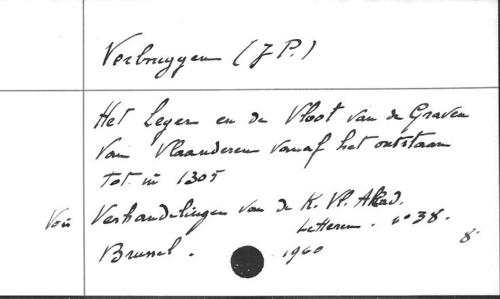 Verbruggen (J P.)
Het leger en de Vloot van de Graven
van Vlaanderen vanaf het ontstaan
tot in 1305
Voir Verhandelingen van de K. Vl. Akad.
Letteren. n° 38.
Brussel. 1960 8°